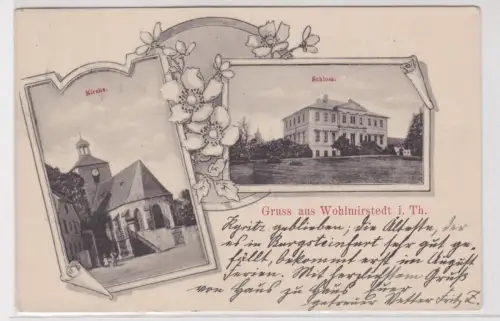 Kirche.
Schloss.
Gruss aus Wohlmirstedt i. Th.
Kyritz geblieben; die Älteste, der
es in Burgsteinfurt sehr gut ge-
fällt, bekommt erst im August
Ferien. Mit herzlichstem Gruß
von Haus zu Haus Euer
getreuer Vetter Fritz Z.